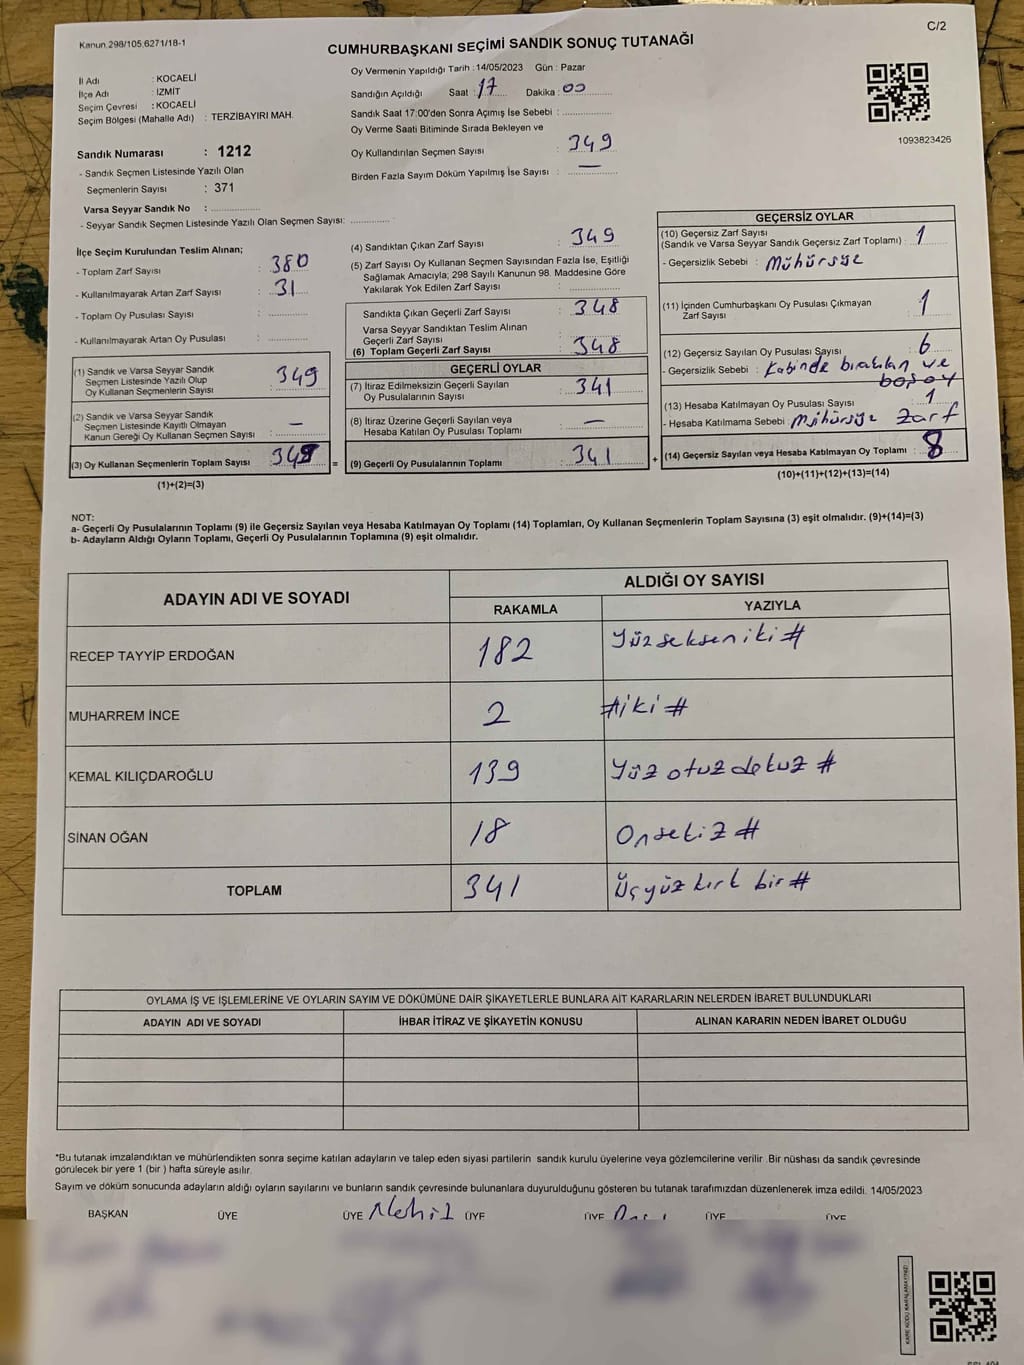 Kanun.298/105,6271/18-1
C/2
CUMHURBAŞKANI SEÇİMİ SANDIK SONUÇ TUTANAĞI
İl Adı : KOCAELİ
İlçe Adı : İZMİT
Seçim Çevresi : KOCAELİ
Seçim Bölgesi (Mahalle Adı) : TERZİBAYIRI MAH.
Sandık Numarası : 1212
- Sandık Seçmen Listesinde Yazılı Olan
Seçmenlerin Sayısı : 371
Varsa Seyyar Sandık No :
- Seyyar Sandık Seçmen Listesinde Yazılı Olan Seçmen Sayısı:
Oy Vermenin Yapıldığı Tarih : 14/05/2023 Gün : Pazar
Sandığın Açıldığı Saat : 17 Dakika : 00
Sandık Saat 17:00'den Sonra Açımış İse Sebebi :
Oy Verme Saati Bitiminde Sırada Bekleyen ve
Oy Kullandırılan Seçmen Sayısı : 349
Birden Fazla Sayım Döküm Yapılmış İse Sayısı : —
1093823426
İlçe Seçim Kurulundan Teslim Alınan;
- Toplam Zarf Sayısı : 380
- Kullanılmayarak Artan Zarf Sayısı : 31
- Toplam Oy Pusulası Sayısı :
- Kullanılmayarak Artan Oy Pusulası :
(1) Sandık ve Varsa Seyyar Sandık
Seçmen Listesinde Yazılı Olup
Oy Kullanan Seçmenlerin Sayısı : 349
(2) Sandık ve Varsa Seyyar Sandık
Seçmen Listesinde Kayıtlı Olmayan
Kanun Gereği Oy Kullanan Seçmen Sayısı : —
(3) Oy Kullanan Seçmenlerin Toplam Sayısı : 349 =
(1)+(2)=(3)
(4) Sandıktan Çıkan Zarf Sayısı : 349
(5) Zarf Sayısı Oy Kullanan Seçmen Sayısından Fazla İse, Eşitliği
Sağlamak Amacıyla; 298 Sayılı Kanunun 98. Maddesine Göre
Yakılarak Yok Edilen Zarf Sayısı :
Sandıkta Çıkan Geçerli Zarf Sayısı : 348
Varsa Seyyar Sandıktan Teslim Alınan
Geçerli Zarf Sayısı :
(6) Toplam Geçerli Zarf Sayısı : 348
GEÇERLİ OYLAR
(7) İtiraz Edilmeksizin Geçerli Sayılan
Oy Pusulalarının Sayısı : 341
(8) İtiraz Üzerine Geçerli Sayılan veya
Hesaba Katılan Oy Pusulası Toplamı : —
(9) Geçerli Oy Pusulalarının Toplamı : 341 +
GEÇERSİZ OYLAR
(10) Geçersiz Zarf Sayısı
(Sandık ve Varsa Seyyar Sandık Geçersiz Zarf Toplamı) : 1
- Geçersizlik Sebebi : Mühürsüz
(11) İçinden Cumhurbaşkanı Oy Pusulası Çıkmayan
Zarf Sayısı : 1
(12) Geçersiz Sayılan Oy Pusulası Sayısı : 6
- Geçersizlik Sebebi : Kabinde bırakılan ve
boş oy
(13) Hesaba Katılmayan Oy Pusulası Sayısı : 1
- Hesaba Katılmama Sebebi : Mühürsüz Zarf
(14) Geçersiz Sayılan veya Hesaba Katılmayan Oy Toplamı : 8
(10)+(11)+(12)+(13)=(14)
NOT:
a- Geçerli Oy Pusulalarının Toplamı (9) ile Geçersiz Sayılan veya Hesaba Katılmayan Oy Toplamı (14) Toplamları, Oy Kullanan Seçmenlerin Toplam Sayısına (3) eşit olmalıdır. (9)+(14)=(3)
b- Adayların Aldığı Oyların Toplamı, Geçerli Oy Pusulalarının Toplamına (9) eşit olmalıdır.
ADAYIN ADI VE SOYADI
ALDIĞI OY SAYISI
RAKAMLA YAZIYLA
RECEP TAYYİP ERDOĞAN 182 Yüzsekseniki #
MUHARREM İNCE 2 #iki #
KEMAL KILIÇDAROĞLU 139 Yüz otuz dokuz #
SİNAN OĞAN 18 Onsekiz #
TOPLAM 341 Üçyüz kırk bir #
OYLAMA İŞ VE İŞLEMLERİNE VE OYLARIN SAYIM VE DÖKÜMÜNE DAİR ŞİKAYETLERLE BUNLARA AİT KARARLARIN NELERDEN İBARET BULUNDUKLARI
ADAYIN ADI VE SOYADI İHBAR İTİRAZ VE ŞİKAYETİN KONUSU ALINAN KARARIN NEDEN İBARET OLDUĞU
*Bu tutanak imzalandıktan ve mühürlendikten sonra seçime katılan adayların ve talep eden siyasi partilerin sandık kurulu üyelerine veya gözlemcilerine verilir. Bir nüshası da sandık çevresinde
görülecek bir yere 1 (bir ) hafta süreyle asılır.
Sayım ve döküm sonucunda adayların aldığı oyların sayılarını ve bunların sandık çevresinde bulunanlara duyurulduğunu gösteren bu tutanak tarafımızdan düzenlenerek imza edildi. 14/05/2023
BAŞKAN ÜYE ÜYE ÜYE ÜYE ÜYE ÜYE
KARE KODU KARALAMAYINIZ!